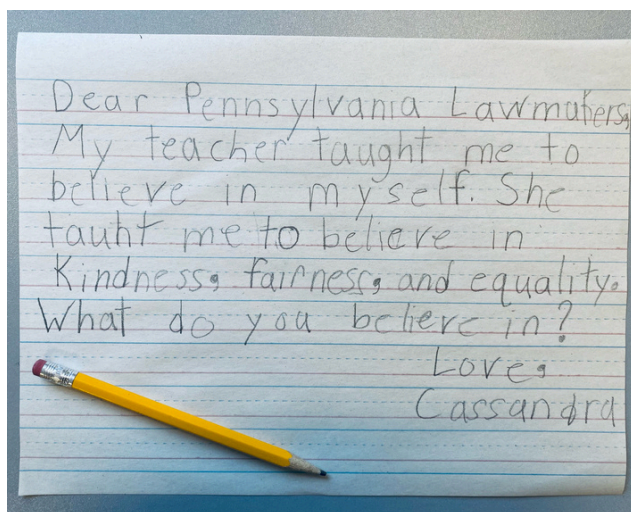 Dear Pennsylvania Lawmakers,
My teacher taught me to
believe in myself. She
tauht me to believe in
Kindness, fairness, and equality.
What do you believe in?
Love,
Cassandra